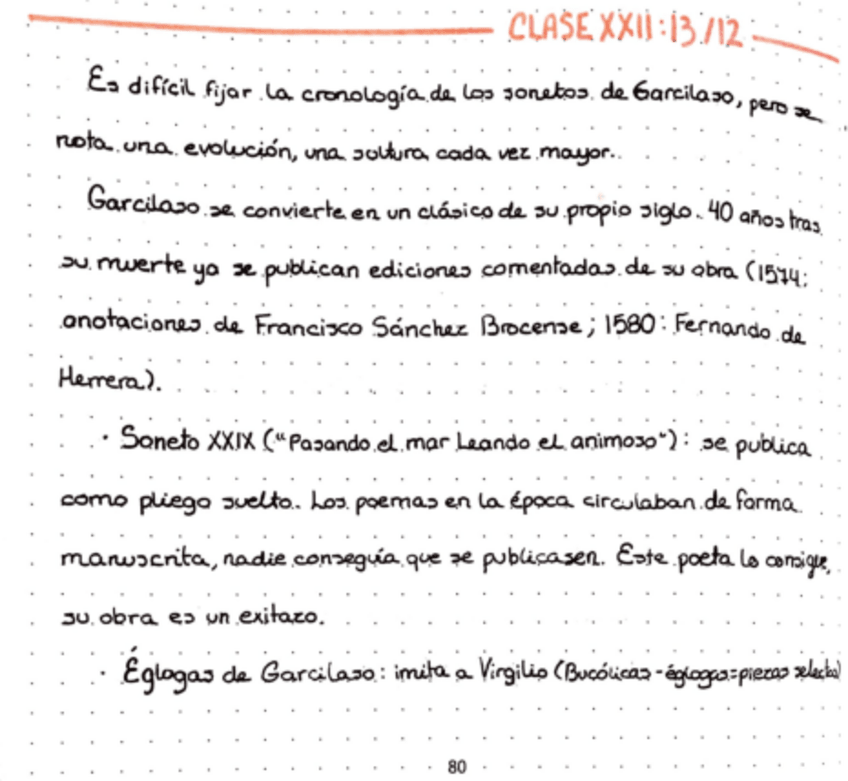 CLASE XXII: 13/12
Es difícil fijar la cronología de los sonetos de Garcilaso, pero se
nota una evolución, una soltura cada vez mayor.
Garcilaso se convierte en un clásico de su propio siglo. 40 años tras
su muerte ya se publican ediciones comentadas de su obra (1574:
anotaciones de Francisco Sánchez Brocense; 1580: Fernando de
Herrera).
· Soneto XXIX ("Pasando el mar Leando el animoso"): se publica
como pliego suelto. Los poemas en la época circulaban de forma
manuscrita, nadie conseguía que se publicasen. Este poeta lo consigue,
su obra es un exitazo.
· Églogas de Garcilaso: imita a Virgilio (Bucólicas - églogas=piezas selectas)
80